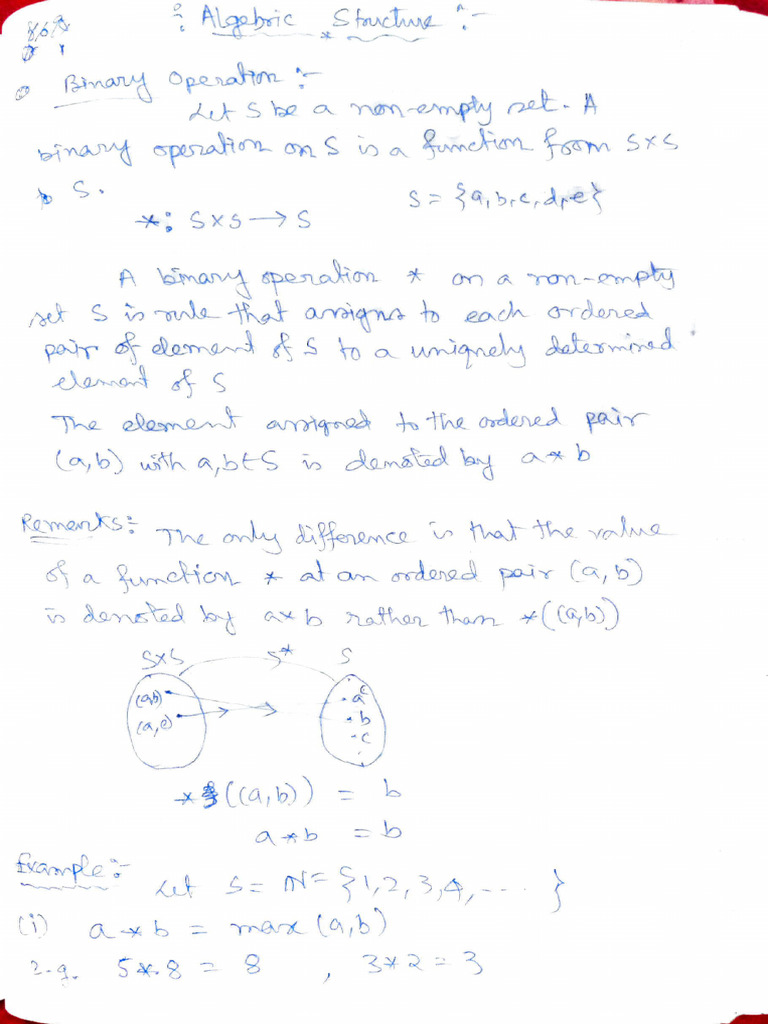 : Algebric Structure :-
Binary Operation :-
Let S be a non-empty set. A
binary operation on S is a function from S×S
to S.
S = {a, b, c, d, e}
*: S×S → S
A binary operation * on a non-empty
set S is rule that assigns to each ordered
pair of element of S to a uniquely determined
element of S
The element assigned to the ordered pair
(a,b) with a,b∈S is denoted by a*b
Remarks: The only difference is that the value
of a function * at an ordered pair (a,b)
is denoted by a*b rather than *((a,b))
S×S S* S
(a,b) a
(a,c) b
c
*((a,b)) = b
a*b = b
Example:-
Let S = N = {1,2,3,4,....}
(i) a*b = max(a,b)
e.g. 5*8 = 8 , 3*2 = 3